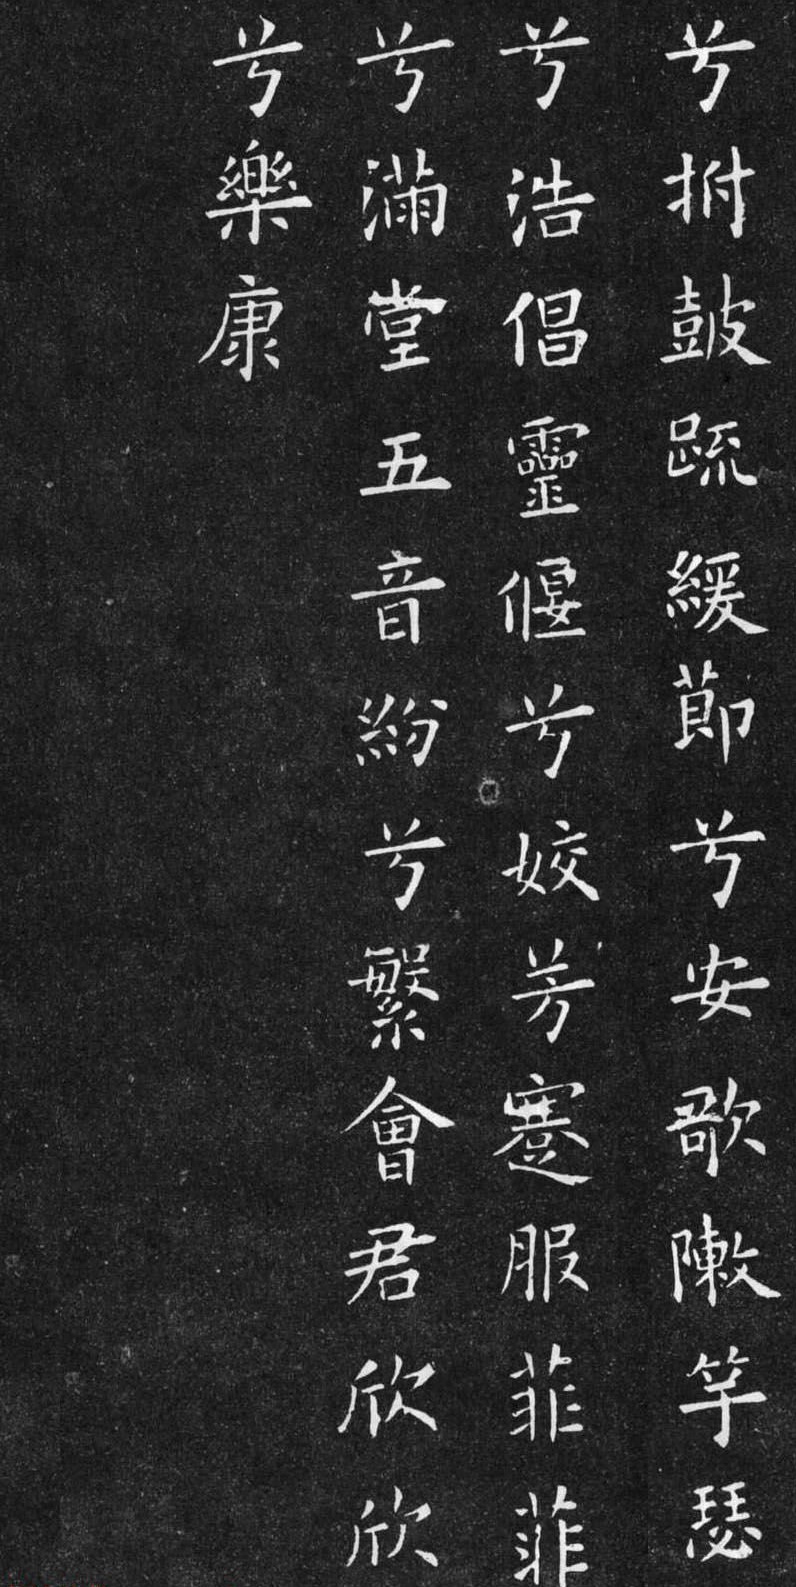 兮拊鼓疏緩節兮安歌敶竽瑟
兮浩倡靈偃兮姣芳蹇服菲菲
兮滿堂五音紛兮繁會君欣欣
兮樂康